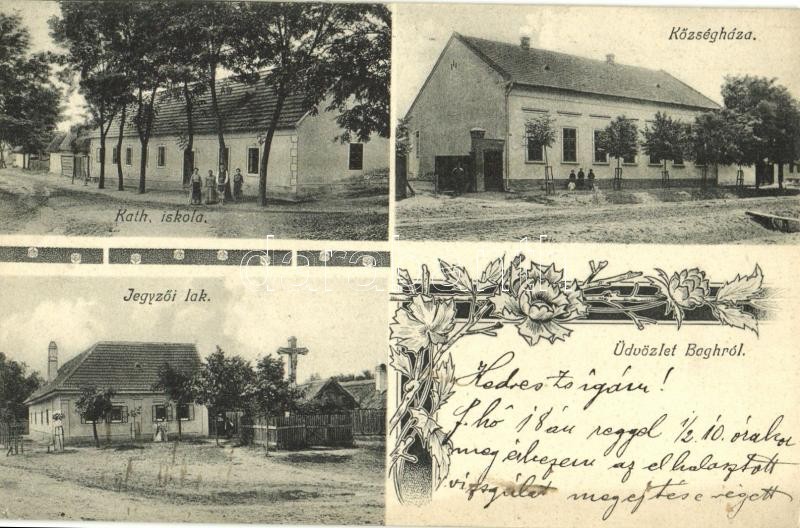 Kath. iskola.
Községháza.
Jegyzői lak.
Üdvözlet Baghról.
Kedves Zsigám!
f. hó 18án reggel ½ 10. órakor
megérkezem az elhalasztott
vizsgálat megejtése végett